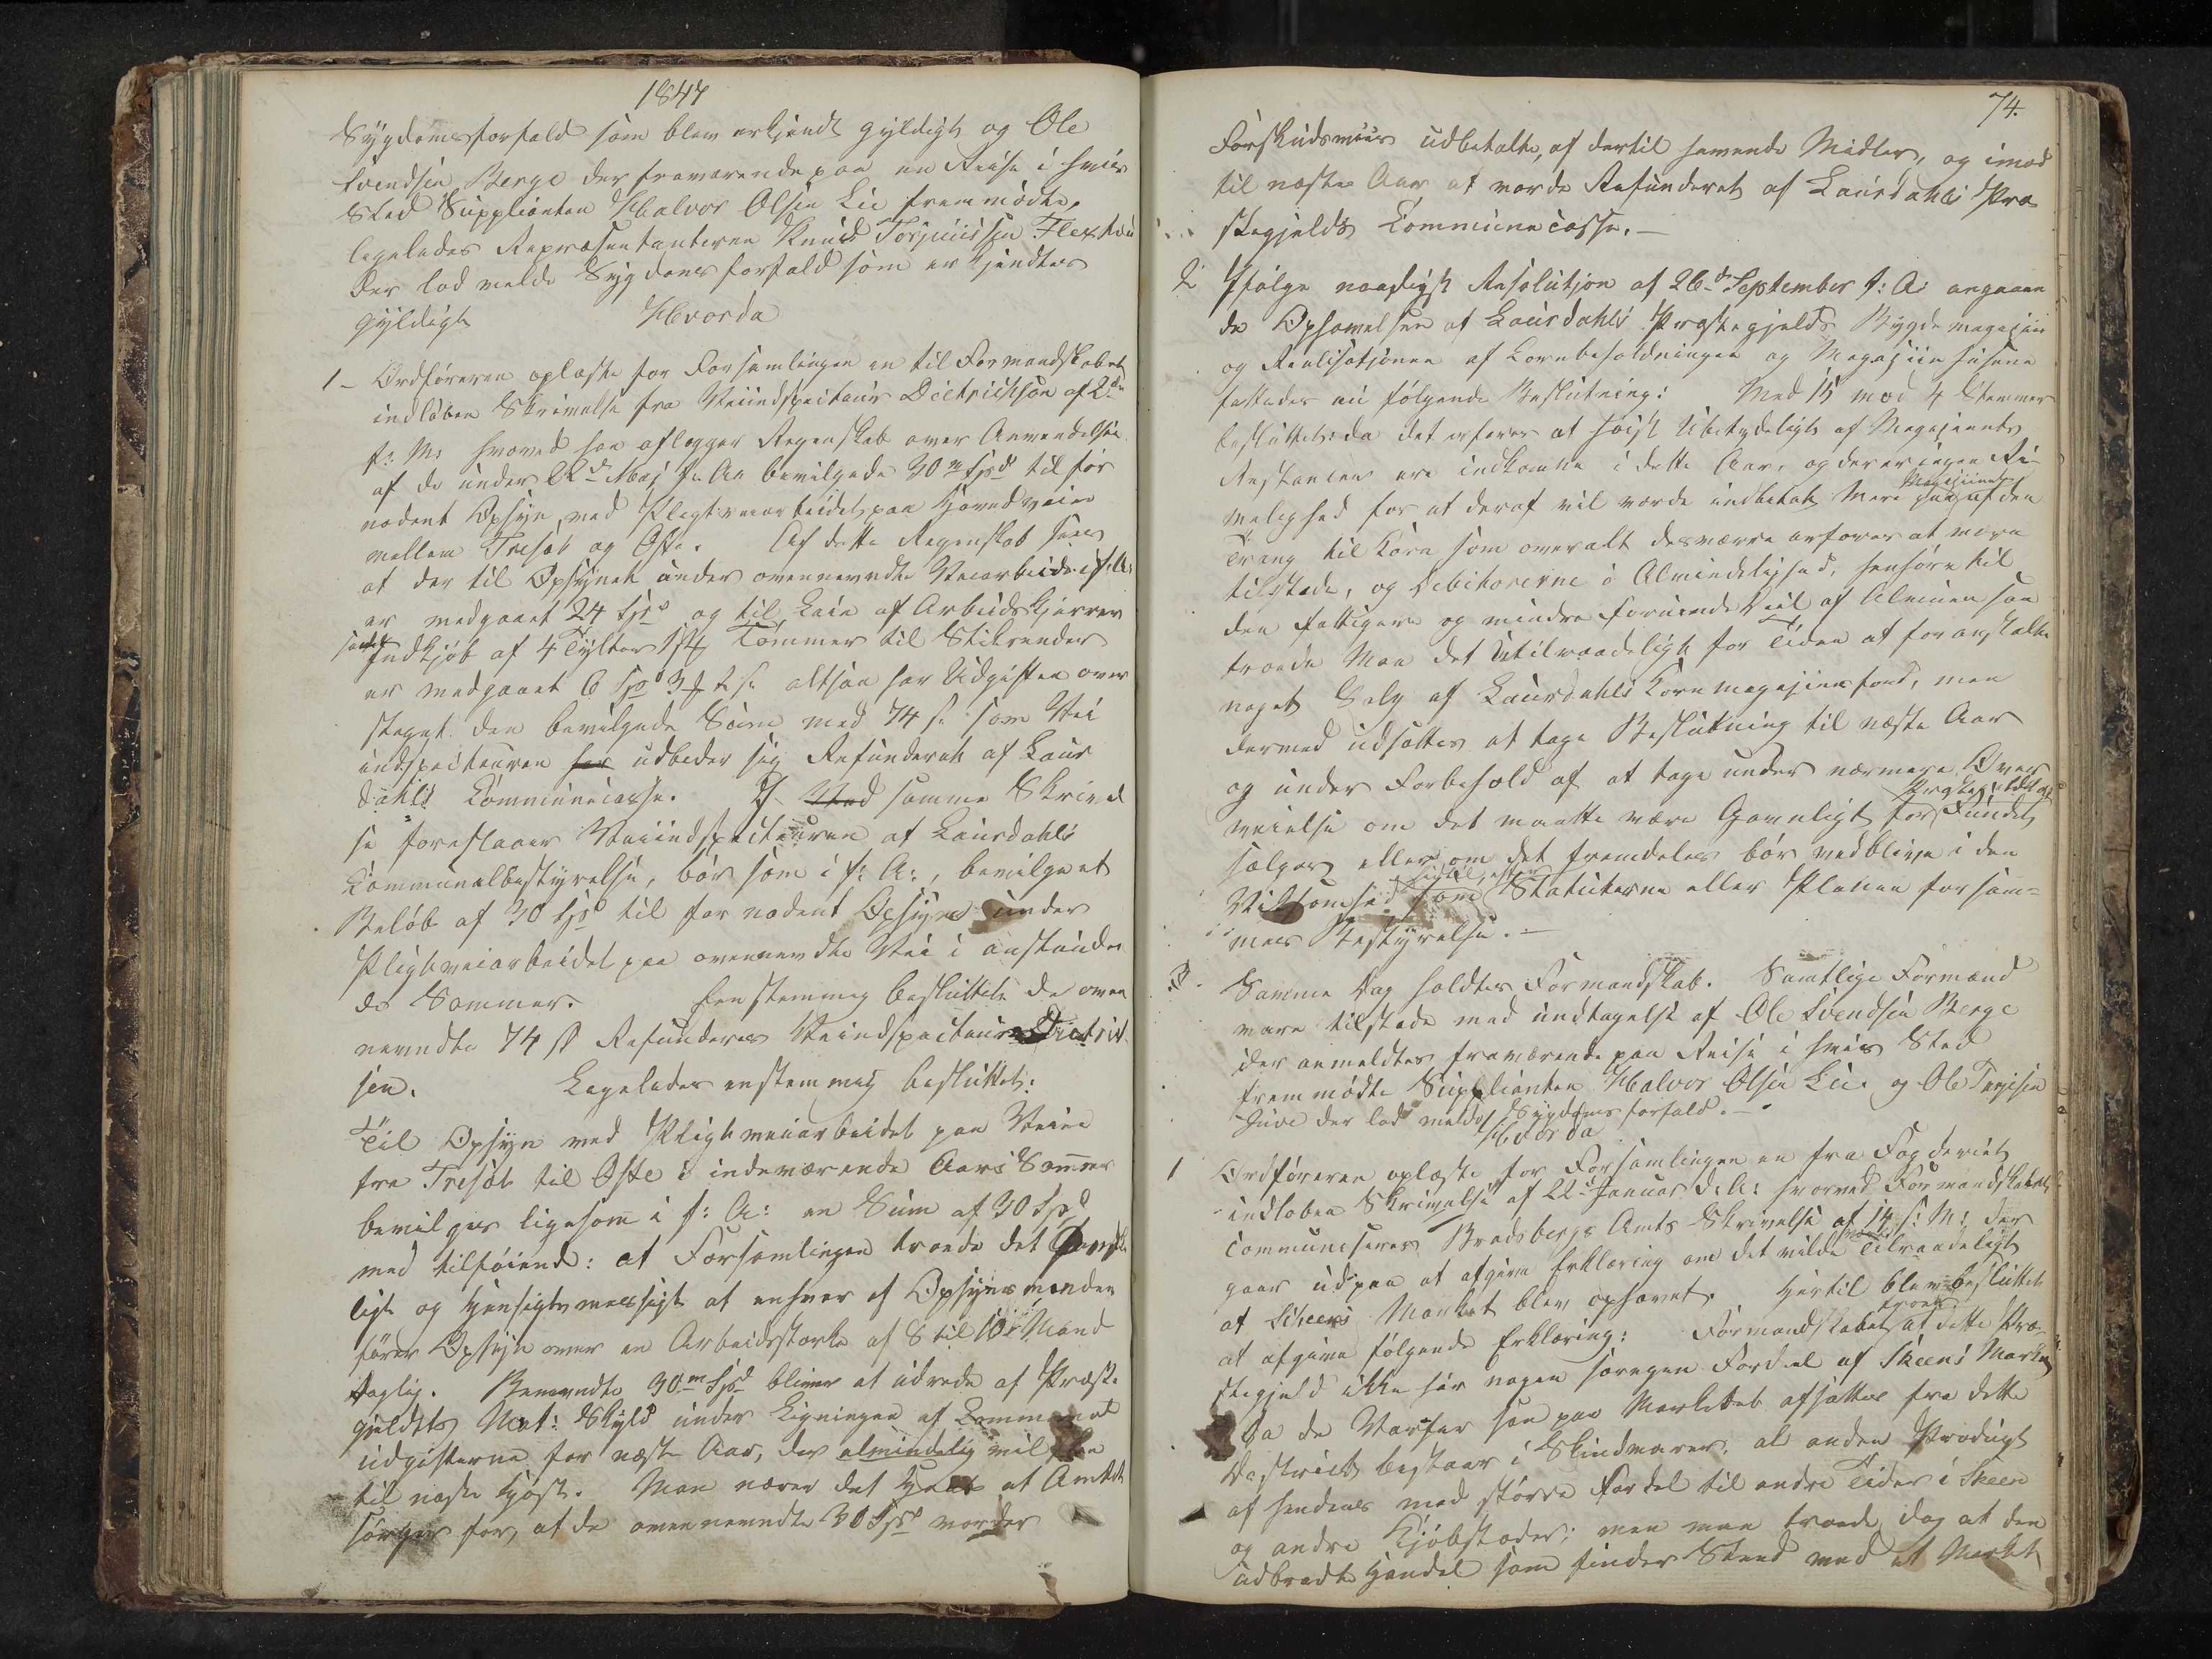 1847
Sygdomsforfald som blev erkjendt gyldigt og Ole
Svendsen Berge der fraværende paa en Reise i hvis
Sted Supplianten Halvor Olsen Lie fremmødte,
ligeledes Repræsentanteren Knud Torjuussen
der lod melde Sygdoms forfald som erkjendtes
gyldigt Hvorda
1- Ordføreren oplæste for Forsamlingen en til Formandskabet
indløben Skrivelse fra Veiinspecteur Dietrichson af 2den
f: M: hvorved han aflægger Regenskab over Anvendelsen
af de under 22d Maj f: Aar bevilgede 30 Spd til for
nødent Opsyn ved Pligtveiarbeidet paa Hovedveien
mellem Tresøt og Ofte. Af dette Regenskab sees
at der til Opsynet under ovennevndte Veiarbeide i f: A:
er medgaaet 24 Spd og til Leie af Arbeidskjerrer
samt Indkjøb af 4 Tylter Tømmer til Stikrender
er medgaaet 6 Sp 3 altsaa har Udgiften over
steget den bevilgede Sum med 74 s. som Vei
indspecteuren har udbeder sig Refunderet af Laur
dahls Communecasse. Med samme Skrivel
se foreslaaer Veiindspecteuren at Laurdahls
Communalbestyrelse, bør som i f: A:, bevilge et
Beløb af 30 Spd til for nødent Opsyn under
Pligtveiarbeidet paa ovennevndte Vei i anstunden
de Sommer. Eenstemmig besluttet: De oven
nevndte 74 s Refunderes Veiindspecteur Dietrich
sen. Ligeledes enstemmig besluttet:
Til Opsyn med Pligtveiarbeidet paa Veien
fra Tresøt til Ofte i indeværende Aars Sommer
bevilges ligesom i f: A: en Sum af 30 Spd
med tilføiende: at Forsamlingen troede det
ligt og hensigtsmessigt at enhver af Opsynsmenden
fører Opsyn over en Arbeidsstyrke af 8 til 10 Mand
daglig. Benevndte 30 Spd bliver at udrede af Præste
gjeldets Mat: Skyld under Ligningen af Communal
udgifterne for næste Aar, der almindelig vil skee
til næste Høst. Man nærer det Haab at Amtet
sørger for, at de ovennevndte 30 Spd vorder
74.
Forskudsviis udbetalte, af dertil havende Midler, og imod
til næste Aar at vorde Refunderet af Laurdahls Præ
stegjelds Communecasse. —
2 Ifølge naadigst Resolution af 26d September f: A: angaaen
de Ophævelsen af Laurdahls Præstegjelds Bygdemagasin
og Realisationen af Kornbeholdningen og Magasiinhusene
fattedes nu følgende Beslutning: Med 15 mod 4 Stemmer
besluttet: da det erfares at høist Ubetydeligt af Magasinets
Restancer ere indkomne i dette Aar, og der er ingen Ri-
melighed for at deraf vil vorde indbetalt Mere Magasiinet
Trang til Korn som overalt desværre erfares at være
tilstede, og Debitorerne i Almindelighed, henhøre til
den fattigere og mindre Formuende Deel af Almuen saa
troede Man det Utilraadeligt for Tiden at foranstalte
noget Salg af Laurdahls Kornmagasiinsfond, men
dermed udsættes at tage Beslutning til næste Aar
og under Forbehold af at tage under nærmere Over
veielse om det maatte være Gavnligt for Præstegjeldet at Fundet
sælges eller om det fremdeles bør vedblive i den
Virksomhed som Statuterne eller Planen for sam-
mes Bestyrelse. —
3. Samme Dag holdtes Formandskab. Samtlige Formænd
vare tilstede med undtagelse af Ole Svendsen Berge
der anmeldtes fraværende paa Reise i hvis Sted
fremmødte Supplianten Halvor Olsen Lie og Ole Tarjesen
Juve der lod melde Sygdoms forfald. —
Hvorda
1 Ordføreren oplæste for Forsamlingen en fra Fogderiet
indløben Skrivelse af 22d Januar d: A: hvorved Formandskabet
communiseres Bradsbergs Amts Skrivelse af 14 s: M: der
gaar udpaa at afgive Erklæring om det vilde være Tilraadeligt
at Skeens Market blev ophævet. Hertil blev besluttet
at afgive følgende Erklæring: Formandskabet troer at dette Præ-
stegjeld ikke har nogen særegen Fordeel af Skeens Market
Da de Varer som paa Markedet afsættes fra dette
Destrict bestaar i Skindvarer, al anden Produgt
afhendes med større Fordel til andre Tider i Skeen
og andre Kjøbstæder; men man troede dog at den
udbredte Handel som finder Sted ved et Market